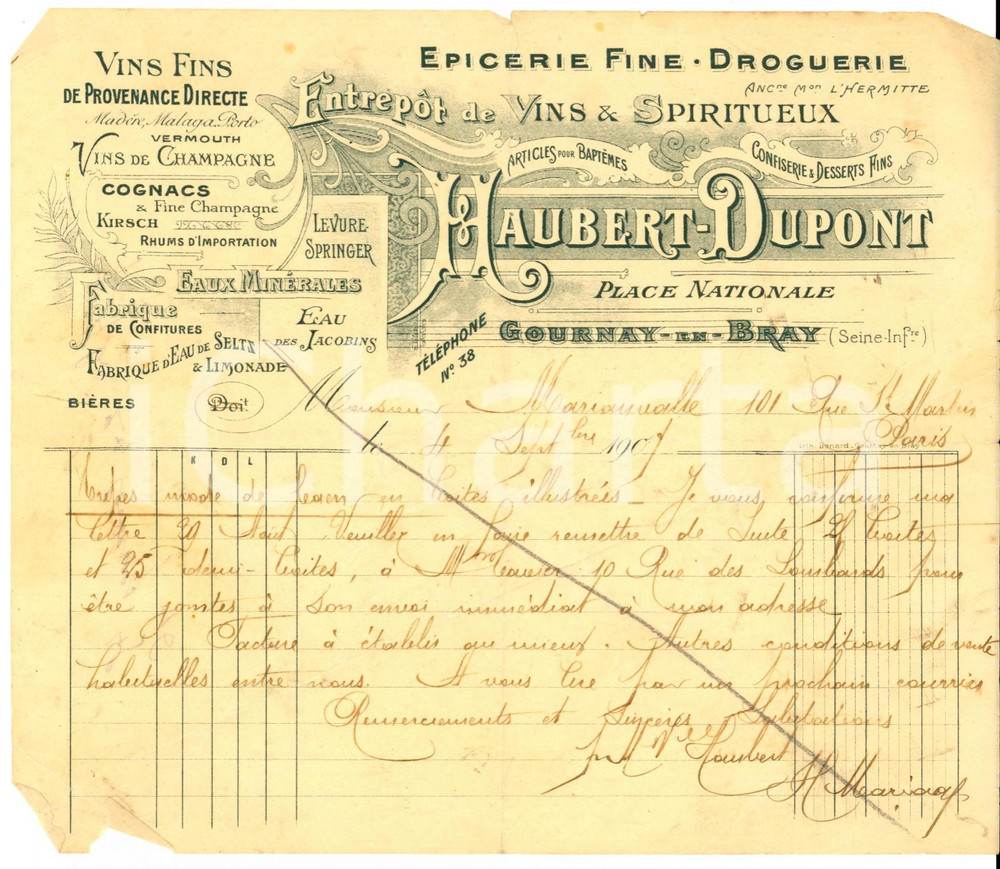 EPICERIE FINE · DROGUERIE
ANCne Mon L'HERMITTE
Entrepôt de VINS & SPIRITUEUX
VINS FINS
DE PROVENANCE DIRECTE
Madère, Malaga, Porto
VERMOUTH
VINS DE CHAMPAGNE
COGNACS
& Fine Champagne
KIRSCH
RHUMS D'IMPORTATION
LEVURE-
SPRINGER
ARTICLES POUR BAPTÊMES
CONFISERIE & DESSERTS FINS
HAUBERT-DUPONT
PLACE NATIONALE
GOURNAY-EN-BRAY (Seine-Infre)
TÉLÉPHONE
No 38
EAUX MINÉRALES
Fabrique
DE CONFITURES
FABRIQUE D'EAU DE SELTZ
& LIMONADE
EAU
DES JACOBINS
BIÈRES
Doit
Monsieur Mariavalle 101 Rue St Martin
Paris
le 4 Septbre 1907
K D L
Tripes mode de Caen en boites illustrées _ Je vous confirme ma
lettre 29 Août. Veuillez en faire remettre de suite 25 boites
et 25 demi-boites, à Mr 10 Rue des Lombards pour
être jointes à son envoi immédiat à mon adresse
Facture à établir au mieux. Autres conditions de vente
habituelles entre nous. A vous lire par un prochain courrier
Remerciements et Sincères Salutations
Haubert
iCharta